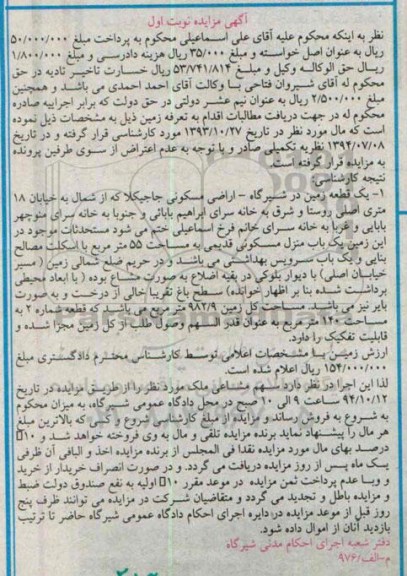 آگهی مزایده نوبت اول
نظر به اینکه محکوم علیه آقای علی اسماعیلی محکوم به پرداخت مبلغ ۵۰/۰۰۰/۰۰۰
ریال به عنوان اصل خواسته و مبلغ ۳۵/۰۰۰ ریال هزینه دادرسی و مبلغ ۱/۸۰۰/۰۰۰
ریال حق الوکاله وکیل و مبلغ ۵۳/۷۴۱/۸۱۴ ریال خسارت تاخیر تادیه در حق
محکوم له آقای شیروان فتاحی با وکالت آقای احمد احمدی می باشد و همچنین
مبلغ ۲/۵۰۰/۰۰۰ ریال به عنوان نیم عشر دولتی در حق دولت که برابر اجراییه صادره
محکوم له در جهت دریافت مطالبات اقدام به تعرفه زمین ذیل به مشخصات ذیل نموده
است که مال مورد نظر در تاریخ ۱۳۹۳/۱۰/۲۷ مورد کارشناسی قرار گرفته و در تاریخ
۱۳۹۴/۰۷/۰۸ نظریه تکمیلی صادر و با توجه به عدم اعتراض از سوی طرفین پرونده
به مزایده قرار گرفته است.
نتیجه کارشناسی:
۱- یک قطعه زمین در شیرگاه - اراضی مسکونی جاجیکلا که از شمال به خیابان ۱۸
متری اصلی روستا و شرق به خانه سرای ابراهیم بابائی و جنوبا به خانه سرای منوچهر
بابایی و غربا به خانه سرای خانم فرخ اسماعیلی ختم می شود مستحدثات موجود در
این زمین یک باب منزل مسکونی قدیمی به مساحت ۵۵ متر مربع با اسکلت مصالح
بنایی و یک باب سرویس بهداشتی می باشند و در حریم ضلع شمالی زمین (مسیر
خیابان اصلی) با دیوار بلوکی در بقیه اضلاع به صورت مشاع بوده (با ابعاد محیطی
برداشت شده بنا بر اظهار خوانده) سطح باغ تقریبا خالی از درخت و به صورت
بایر نیز می باشد. مساحت کل زمین ۹۸۲/۹ متر مربع می باشد که قطعه شماره ۲ به
مساحت ۱۲۰ متر مربع به عنوان قدر السهم وصول طلب از کل زمین مجزا شده و
قابلیت تفکیک را دارد.
ارزش زمین با مشخصات اعلامی توسط کارشناس محترم دادگستری مبلغ
۱۵۴/۰۰۰/۰۰۰ ریال اعلام شده است.
لذا این اجرا در نظر دارد سهم مشاعی ملک مورد نظر را از طریق مزایده در تاریخ
۹۴/۱۰/۱۲ ساعت ۹ الی ۱۰ صبح در محل دادگاه عمومی شیرگاه، به میزان محکوم
به شروع به فروش رساند و مزایده از مبلغ کارشناسی شروع و کسی که بالاترین مبلغ
هر مال را پیشنهاد نماید برنده مزایده تلقی و مال به وی فروخته خواهد شد و ۱۰
درصد بهای مال مورد مزایده نقدا فی المجلس از برنده مزایده اخذ و الباقی آن ظرفی
یک ماه پس از روز مزایده دریافت می گردد. و در صورت انصراف خریدار از خرید
و وبا عدم پرداخت ثمن مزایده در موعد مقرر ۱۰ اولیه به نفع صندوق دولت ضبط
و مزایده باطل و تجدید می گردد و متقاضیان شرکت در مزایده می توانند ظرف پنج
روز قبل از موعد مزایده در دایره اجرای احکام دادگاه عمومی شیرگاه حاضر تا ترتیب
بازدید آنان از اموال داده شود.
دفتر شعبه اجرای احکام مدنی شیرگاه
م-الف/۹۷۶